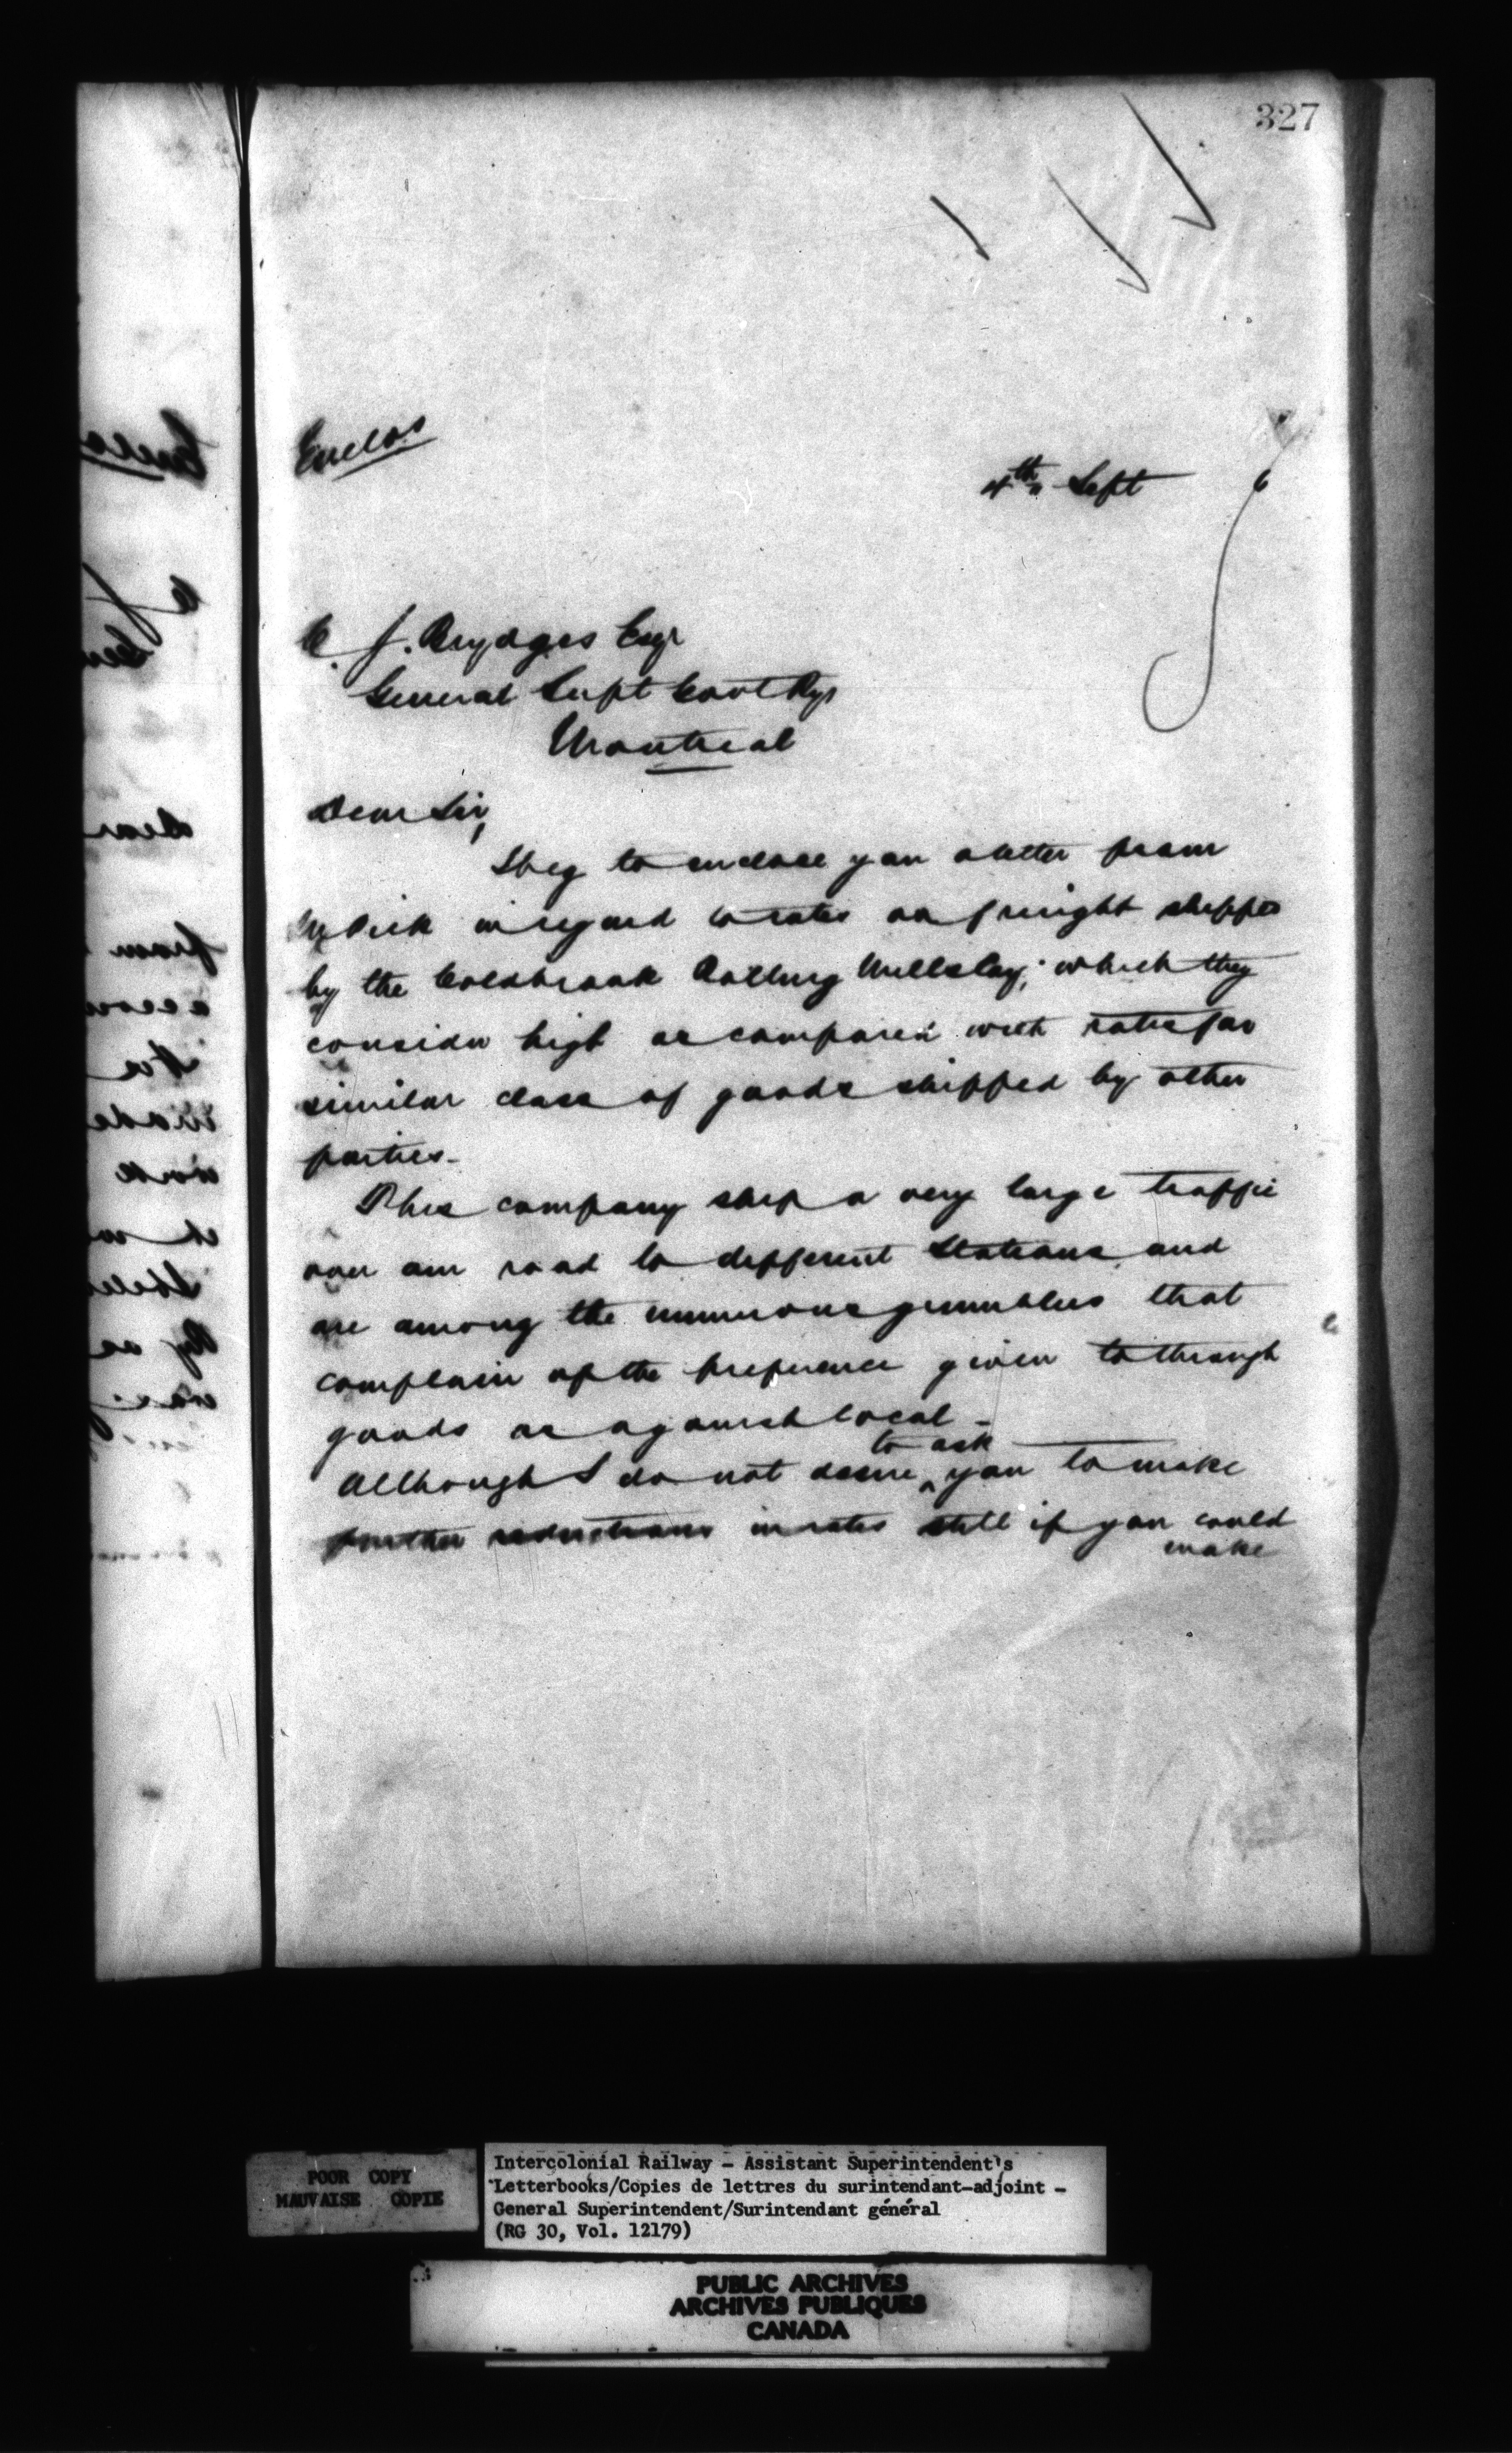 327
Enclos
4th Sept
C. J. Brydges Esqr
General Supt Govt Rys
Montreal
Dear Sir,
I beg to enclose you a letter from
in regard to rates on freight shipped
by the Coldbrook Rolling Mills Coy; which they
consider high as compared with rates for
similar class of goods shipped by other
parties -
This company ship a very large traffic
over our road to different Stations and
are among the numerous grumblers that
complain of the preference given to through
goods as against local -
to ask
Although I do not desire ^ you to make
further reductions in rates still if you could
make
POOR COPY
MAUVAISE COPIE
Intercolonial Railway - Assistant Superintendent's
Letterbooks/Copies de lettres du surintendant-adjoint -
General Superintendent/Surintendant général
(RG 30, Vol. 12179)
PUBLIC ARCHIVES
ARCHIVES PUBLIQUES
CANADA